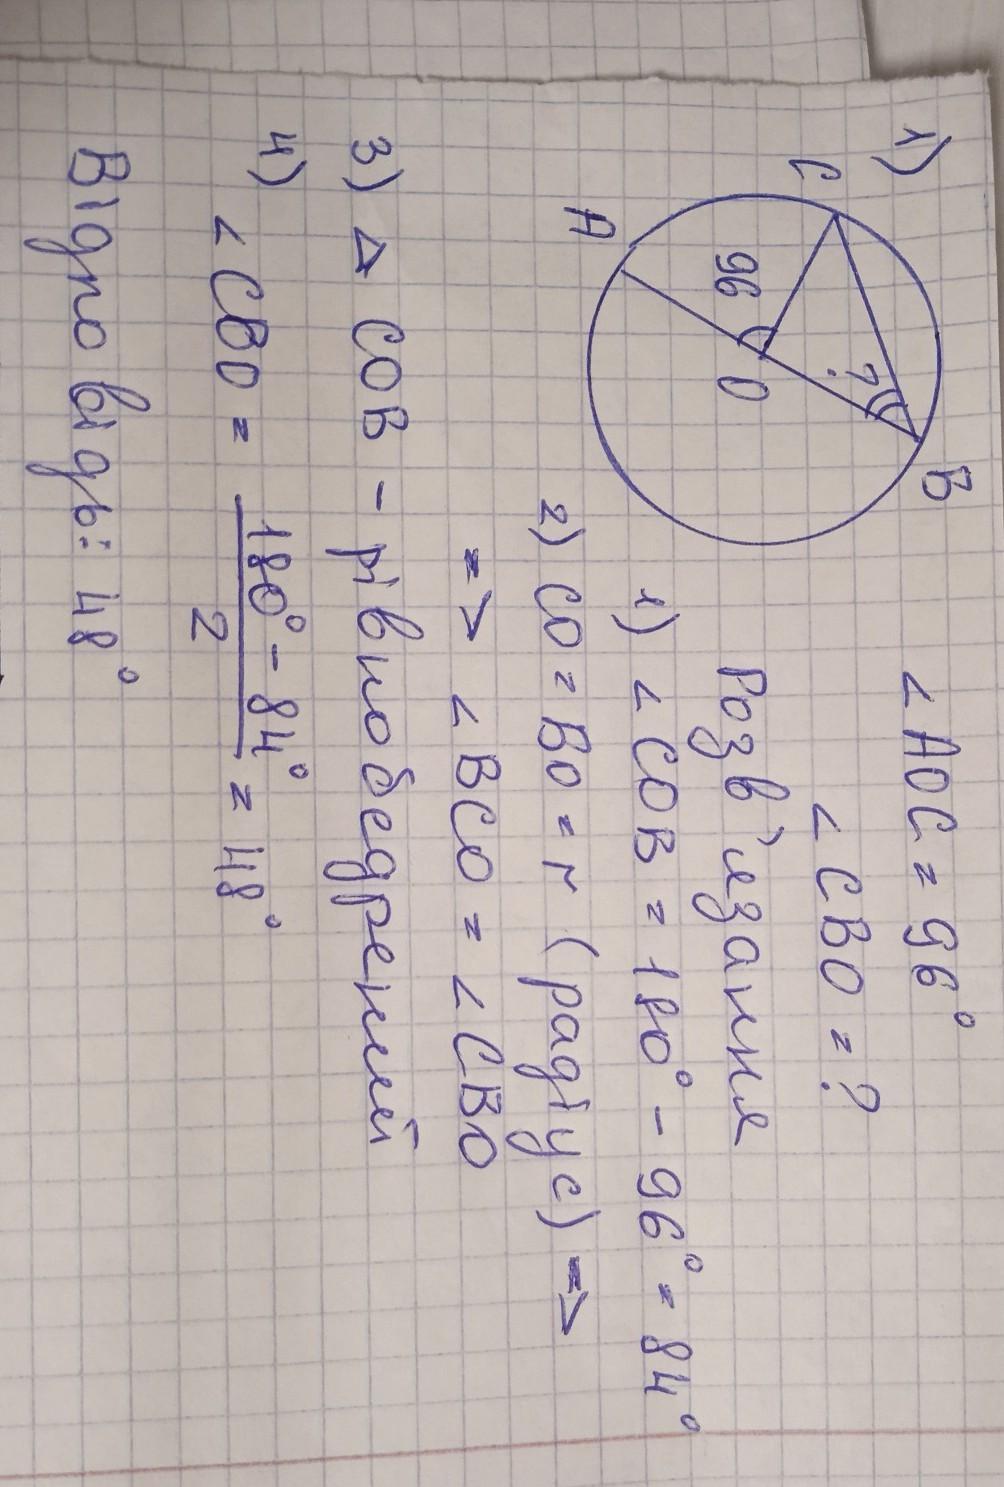 1)
C
B
A
96
O
?
∠AOC = 96°
∠CBO = ?
Розв'язання
1) ∠COB = 180° - 96° = 84°
2) CO = BO = r (радіус) =>
=> ∠BCO = ∠CBO
3) △ COB - рівнобедрений
4) ∠CBO = 180° - 84° / 2 = 48°
Відповідь: 48°